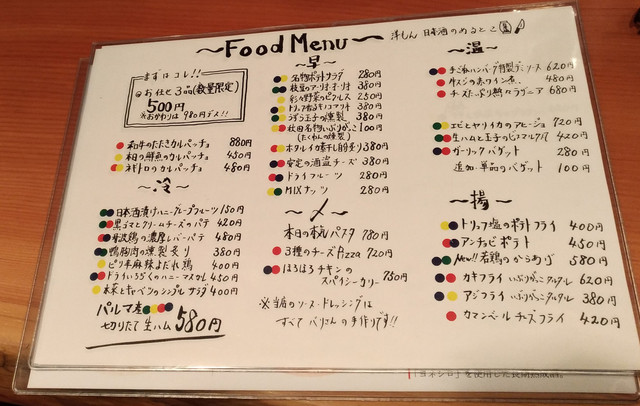 ~Food Menu~
洋しん 日本酒のあるとこ
まずはコレ!!
◎お仕セ3品(数量限定)
500円
※おかわりは980円デス!!
和牛のたたきカルパッチョ 880円
本日の鮮魚のカルパッチョ 450円
ネギトロカルパッチョ 480円
~冷~
日本酒漬けハニーグレープフルーツ 150円
黒ゴマとクリームチーズのパテ 420円
丹波鶏の濃厚レバーパテ 480円
鴨胸肉の燻製炙り 380円
ピリ辛麻辣よだれ鶏 400円
ドライいちぢくのハニーマスカルポ 450円
水菜とキャベツのシンプルサラダ 400円
パルマ産
切りたて生ハム 580円
~早~
名物ポテトサラダ 280円
枝豆のアーリオ・オーリオ 380円
彩々野菜のピクルス 250円
トリュフ香るキノコマリネ 380円
うずら玉子の燻製 380円
秋田名物いぶりがっこ 100円
(たくわんの燻製)
ホタルイカ素干し自家炙り 380円
安定の酒盗チーズ 380円
ドライフルーツ 280円
MIXナッツ 280円
~〆~
本日の本気パスタ 780円
3種のチーズPizza 720円
ほろほろチキンの
スパイシーカリー 750円
※当店のソース・ドレッシングは
すべてバリさんの手作りです!!
~温~
手ごねハンバーグ特製デミソース 620円
牛スジの赤ワイン煮 480円
チーズたっぷり熱々ラザニア 680円
エビとヤリイカのアヒージョ 720円
生ハムと玉子のビスマルク 420円
ガーリックバゲット 280円
追加・単品のバゲット 100円
~揚~
トリュフ塩のポテトフライ 400円
アンチョビポテト 450円
New!!若鶏のからあげ 580円
カキフライいぶりがっこタルタル 620円
アジフライいぶりがっこタルタル 380円
カマンベールチーズフライ 420円